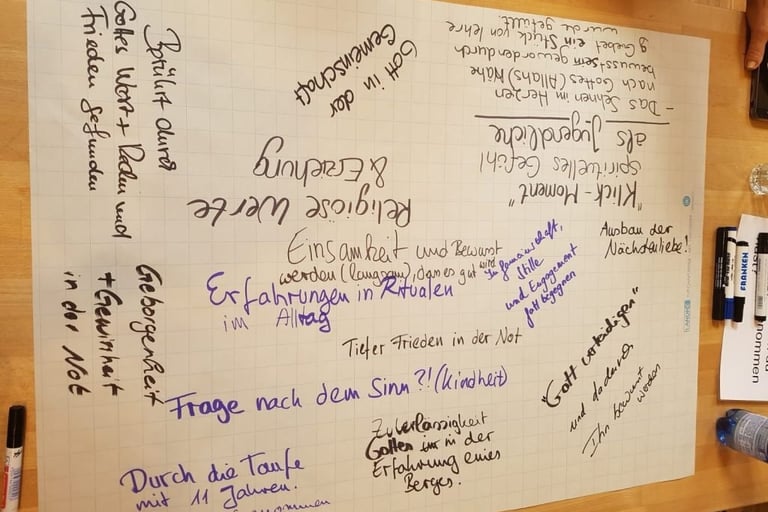 Gott in der
Gemeinschaft
Berührt durch
Gottes Wort + Reden und
Frieden gefunden
- Das Sehnen im Herzen
nach Gottes (Allahs) Nähe
bewusst sein geworden durch
g Gebet ein Stück von lehre
wurde gefüllt.
"Klick-Moment"
spirituelles Gefühl
als Jugendliche
Religiöse Werte
& Erziehung
Ausbau der
Nächstenliebe!
Einsamkeit und Bewusst
werden (langsam), dass es gut wird
Erfahrungen in Ritualen
im Alltag
In Gemeinschaft,
Stille
und Engagement
Gott begegnen
Geborgenheit
+ Gewissheit
in der Not
Tiefer Frieden in der Not
"Gott verteidigen"
und dadurch
Ihn bewusst
werden
Frage nach dem Sinn?! (Kindheit)
Zuverlässigkeit
Gottes in der
Erfahrung eines
Berges.
Durch die Taufe
mit 11 Jahren.
FRANKEN
nommen